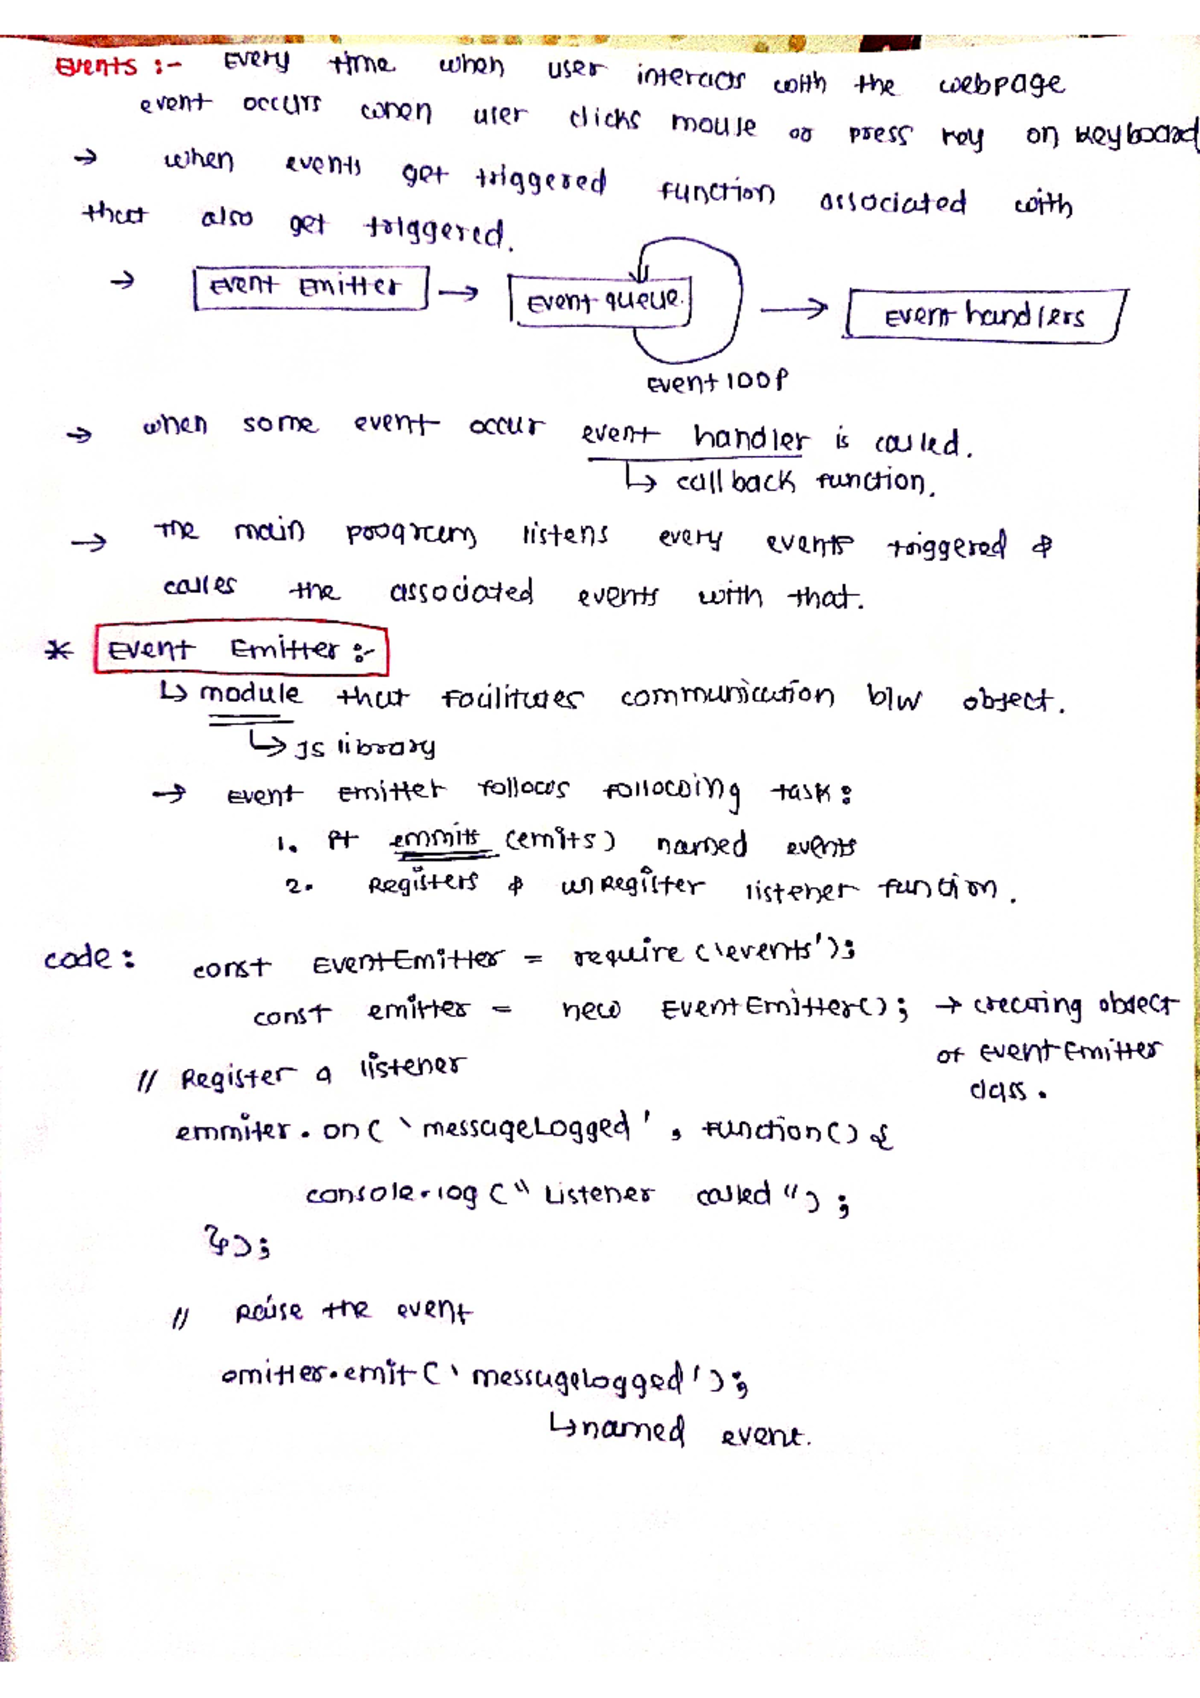 Events :- Every time when user interacts with the webpage
event occurs when user clicks mouse or press key on keyboard
→ when events get triggered function associated with
that also get triggered.
→ Event Emitter → Event queue. → Event handlers
Event loop
→ when some event occur event handler is called.
↳ callback function.
→ The main program listens every events triggered &
calles the associated events with that.
* Event Emitter :-
↳ module that facilitates communication b/w object.
↳ JS library
→ Event Emitter follows following task :
1. It emmits (emits) named events
2. Registers & unRegister listener function.
code : const EventEmitter = require ('events');
const emitter = new EventEmitter(); → creating object
of eventEmitter
class.
// Register a listener
emmiter.on( 'messageLogged' , function() {
console.log ("Listener called") ;
});
// Raise the event
emitter.emit ('messageLogged');
↳ named event.